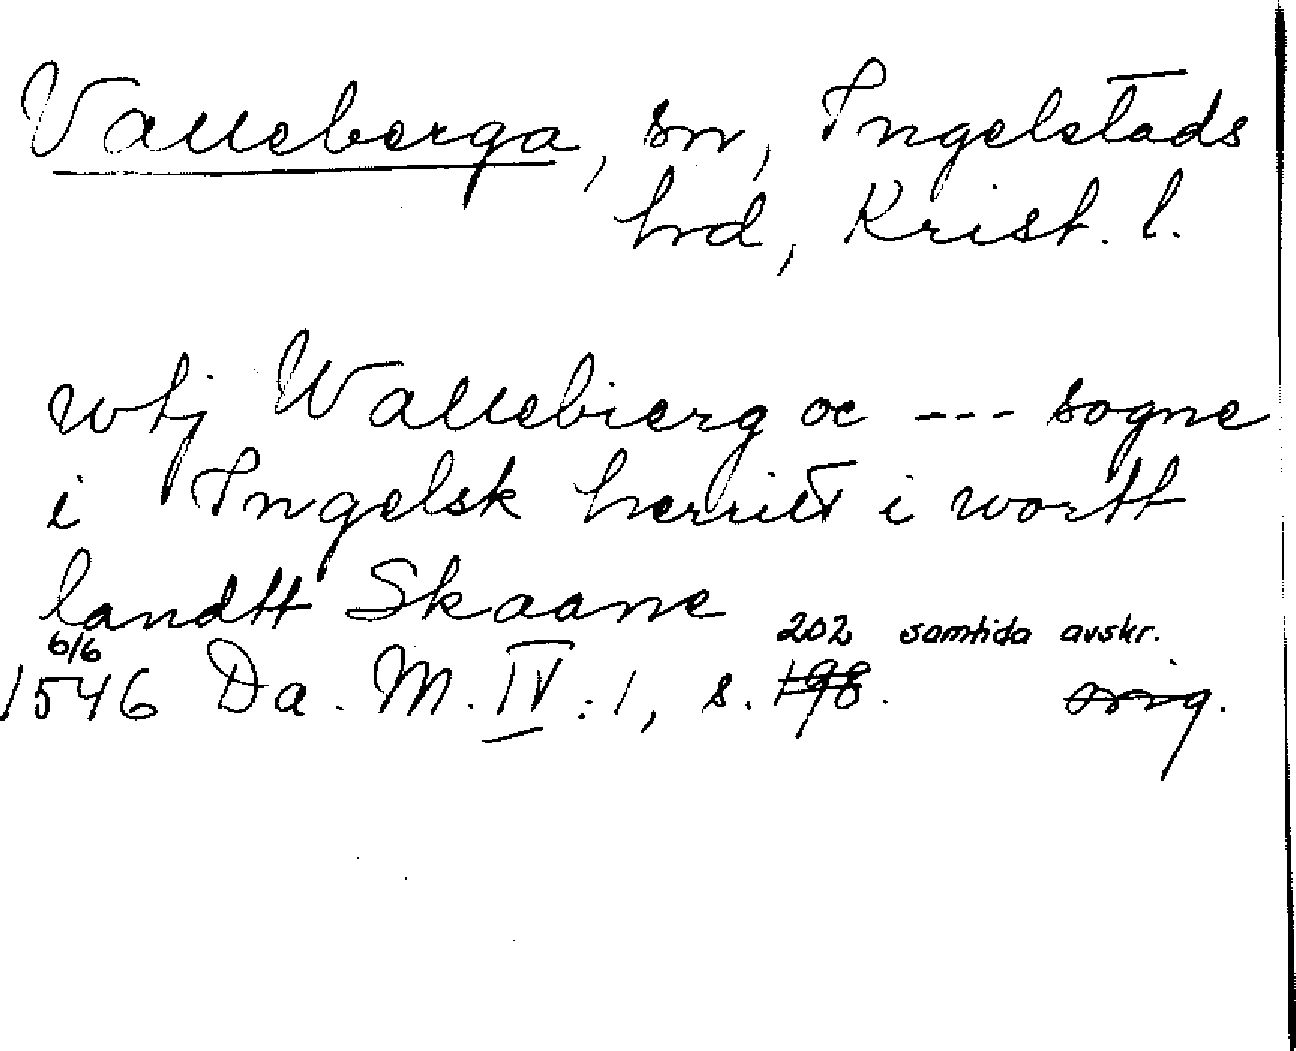 Valleberga, sn, Ingelstads
hd, Krist. l.
wtj Wallebierg oc --- sogne
i Ingelsk herritt i wortt
landtt Skaane
6/6 202 samtida avskr.
1546 Da. M. IV:1, s. 198. orig.